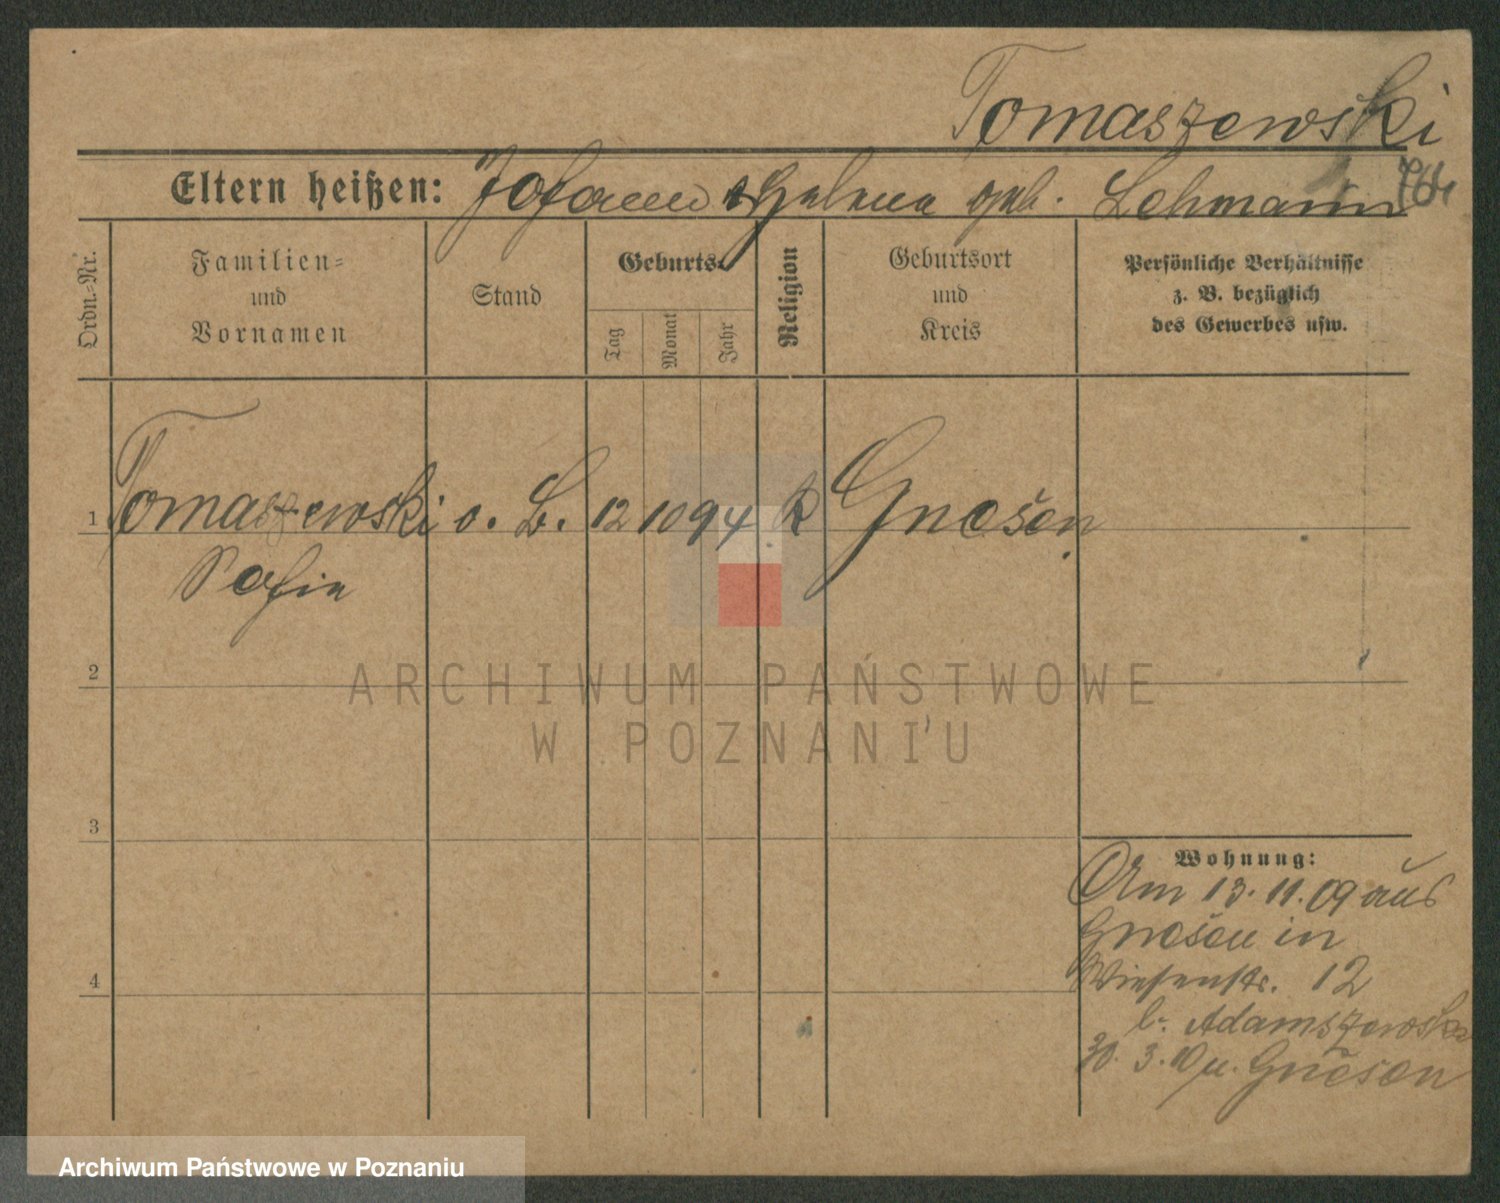 Tomaszewski
Eltern heißen: Johann & Helena geb. Lehmann
Ordn.-Nr.
Familien-
und
Vornamen
Stand
Geburts-
Tag
Monat
Jahr
Religion
Geburtsort
und
Kreis
Persönliche Verhältnisse
z. B. bezüglich
des Gewerbes usw.
1 Tomaszewski o. B. 12 10 94 K Gnesen
Sofia
2
ARCHIWUM PAŃSTWOWE
W POZNANIU
3
Wohnung:
Am 13.11.09 aus
Gnesen in
Wiesenstr. 12
b. Adamszewski
4
30.3.10 n. Gnesen
Archiwum Państwowe w Poznaniu